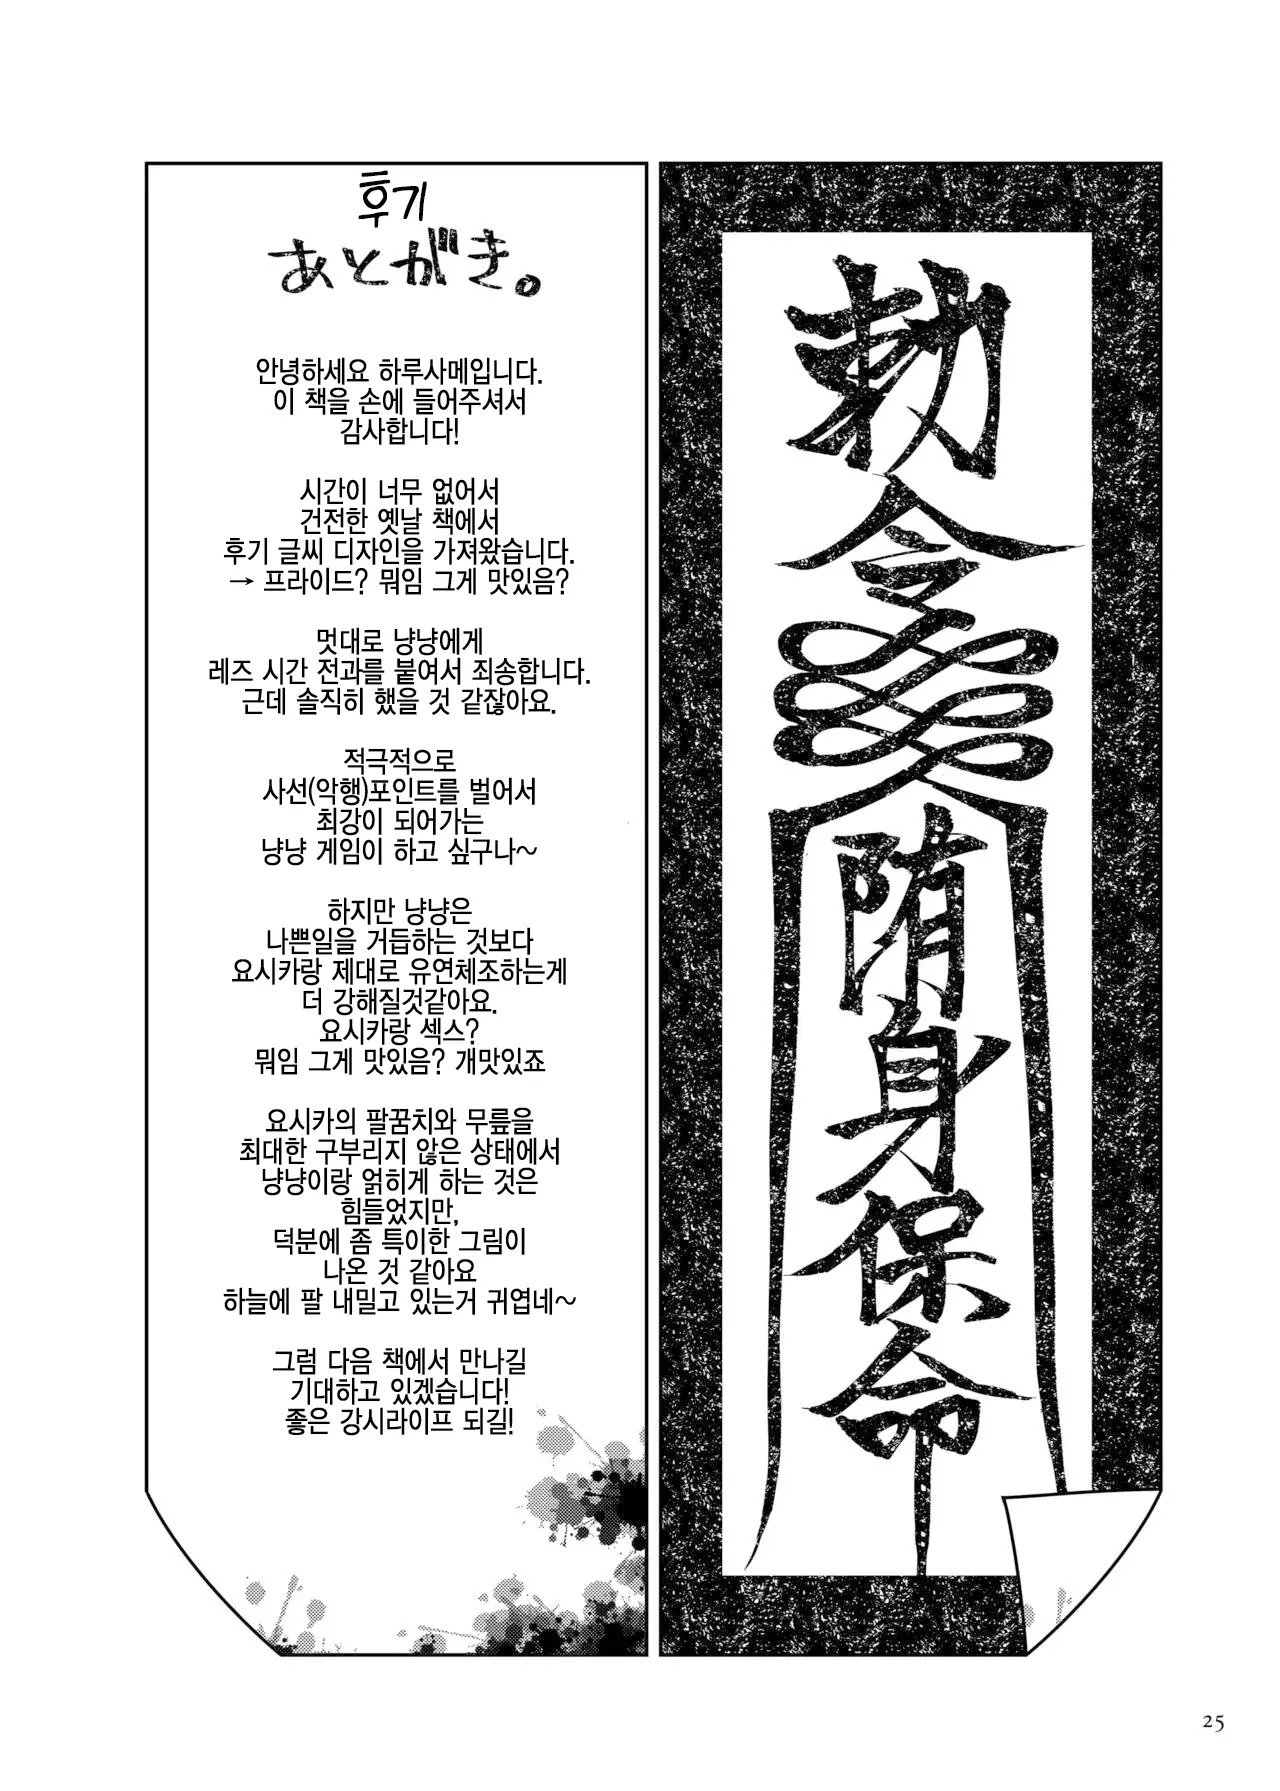 후기
あとがき。
안녕하세요 하루사메입니다.
이 책을 손에 들어주셔서
감사합니다!
시간이 너무 없어서
건전한 옛날 책에서
후기 글씨 디자인을 가져왔습니다.
→ 프라이드? 뭐임 그게 맛있음?
멋대로 냥냥에게
레즈 시간 전과를 붙여서 죄송합니다.
근데 솔직히 했을 것 같잖아요.
적극적으로
사선(악행)포인트를 벌어서
최강이 되어가는
냥냥 게임이 하고 싶구나~
하지만 냥냥은
나쁜일을 거듭하는 것보다
요시카랑 제대로 유연체조하는게
더 강해질것같아요.
요시카랑 섹스?
뭐임 그게 맛있음? 개맛있죠
요시카의 팔꿈치와 무릎을
최대한 구부리지 않은 상태에서
냥냥이랑 얽히게 하는 것은
힘들었지만,
덕분에 좀 특이한 그림이
나온 것 같아요
하늘에 팔 내밀고 있는거 귀엽네~
그럼 다음 책에서 만나길
기대하고 있겠습니다!
좋은 강시라이프 되길!
勅令
陏身保命
25